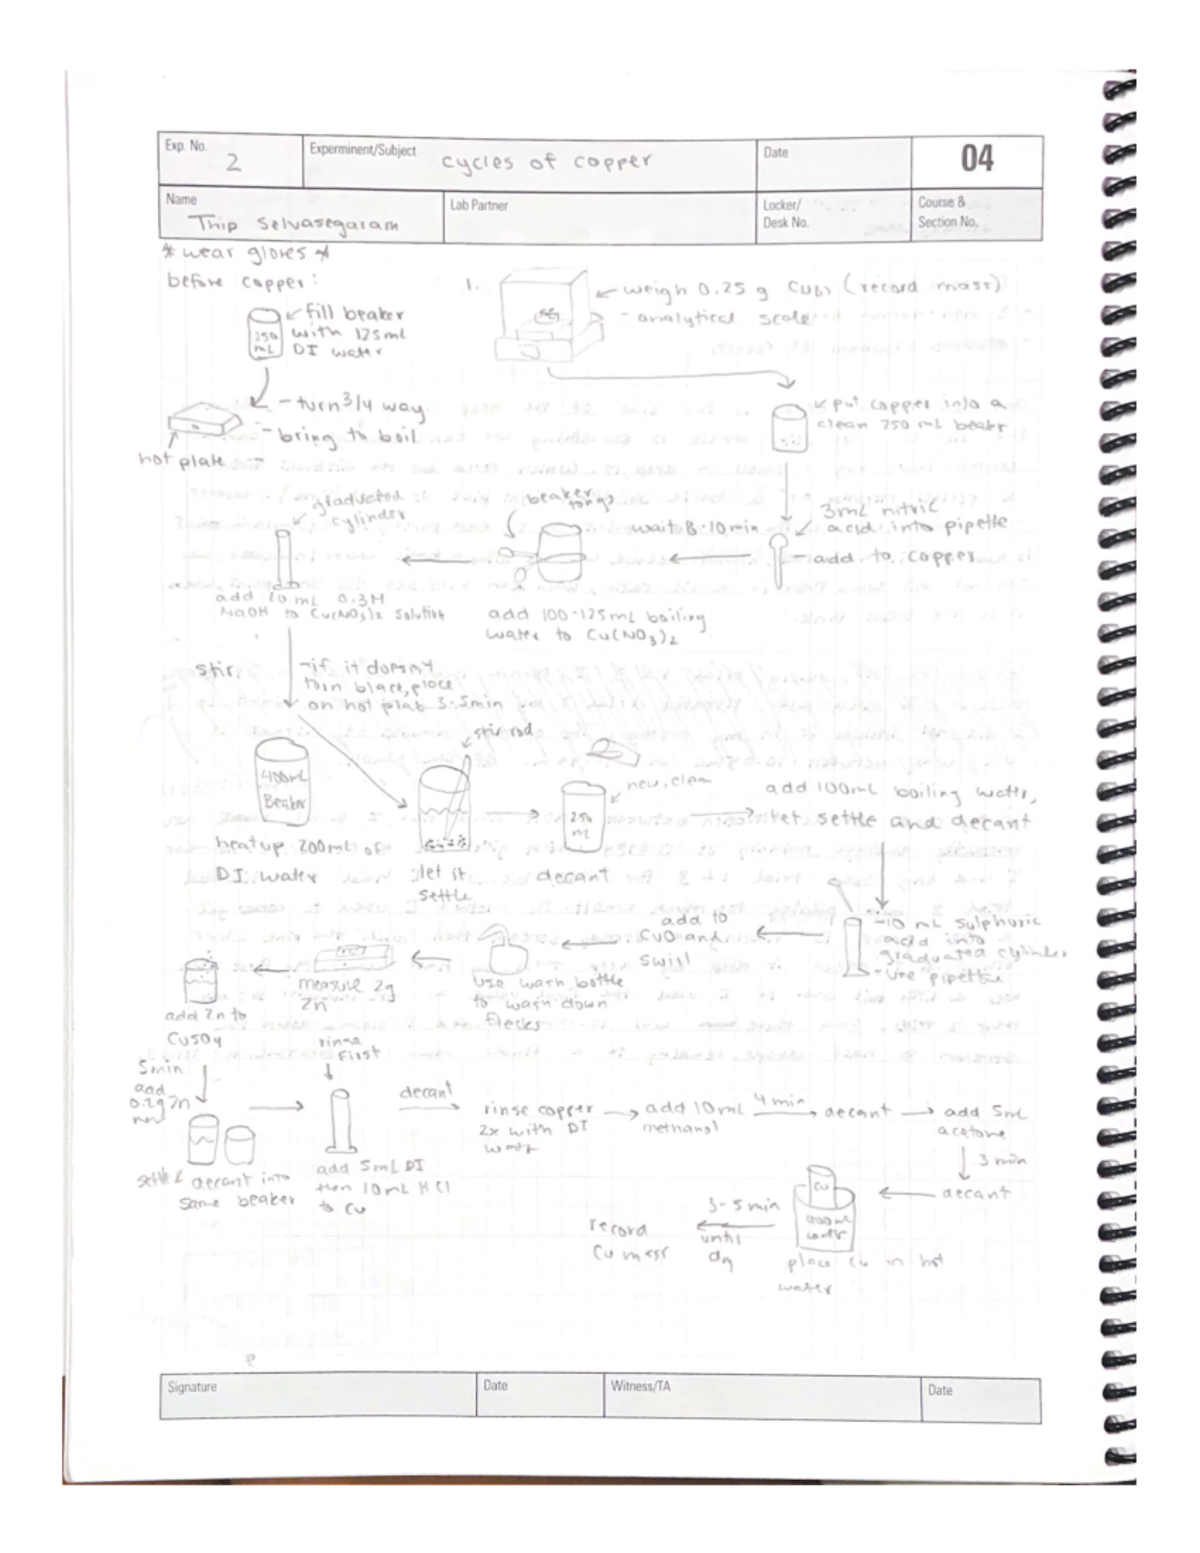 Exp. No. 2
Experminent/Subject cycles of copper
Date
04
Name Thip Selvasegaram
Lab Partner
Locker/
Desk No.
Course &
Section No.
* wear gloves *
before copper:
fill beaker
with 125mL
DI water
250
mL
- turn 3/4 way
- bring to boil
hot plate
1.
weigh 0.25 g Cu(s) (record mass)
- analytical scale
put copper into a
clean 250 mL beakr
3mL nitric
acid into pipette
- add to copper
wait 8-10min
beaker
tongs
add 100-125mL boiling
water to Cu(NO3)2
graducted
cylinder
add 20 mL 0.3M
NaOH to Cu(NO3)2 solution
stir,
- if it doesn't
turn black, place
on hot plate 3-5min
400mL
Beaker
heat up 200mL of
DI water
stir rod
let it
settle
new, clean
250
mL
decant
add 100mL boiling water,
let settle and decant
- 10 mL sulphuric
acid into
graduated cylinder
- use pipette
add to
CuO and
swirl
use wash bottle
to wash down
flecks
measure 2g
Zn
add Zn to
CuSO4
5min
add
0.2g Zn
settle & decant into
same beaker
rinse
first
add 5mL DI
then 10mL HCl
to Cu
decant
rinse copper
2x with DI
water
add 10mL
methanol
4 min
decant
add 5mL
acetone
3 min
decant
Cu
400mL
water
place Cu in hot
water
3-5 min
until
dry
record
Cu mass
e
Signature
Date
Witness/TA
Date